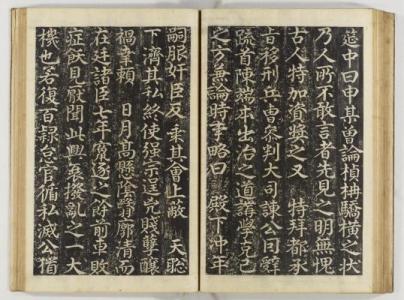 莚中曰申其曽論楨枏驕橫之狀
乃人所不敢言者先見之明無愧
古人特加資奬之又 特拜都承
旨移刑兵曺參判大司諫公因辭
疏首陳端本出治之道講學克己
之方兼論時事略曰 殿下沖年
嗣服奸臣反乘其會上蔽 天聡
下濟其私終使强宗逞兇賤孽釀
禍幸賴 日月高縣陰翳廓清而
在廷諸臣七年竄逐之餘前車敗
症飫見厭聞此興衰撥亂之一大
機也若復百隷怠官循私滅公猶